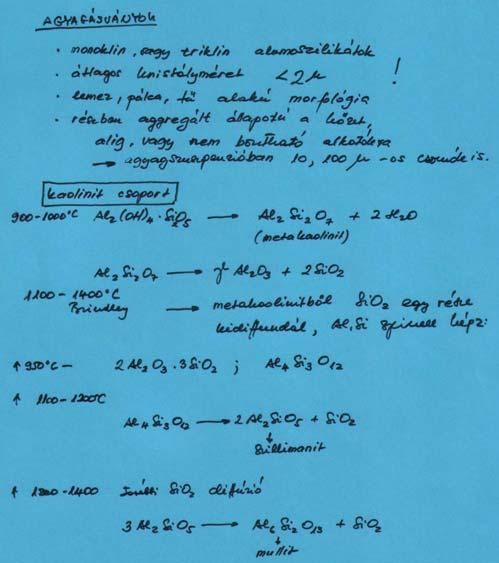 AGYAGÁSVÁNYOK
· monoklin, vagy triklin alumoszilikátok
· átlagos kristályméret <2μ !
· lemez, pálca, tű alakú morfológia
· részben aggregált állapotú a kőzet,
alig, vagy nem bontható alkotókra
→ agyagszuszpenzióban 10, 100 μ-os csomók is.
kaolinit csoport
900-1000°C Al₂(OH)₄·Si₂O₅ → Al₂Si₂O₇ + 2H₂O
(metakaolinit)
Al₂Si₂O₇ → γ Al₂O₃ + 2SiO₂
1100-1400°C
Brindley → metakaolinitből SiO₂ egy része
kidiffundál, Al,Si spinell képz:
↑950°C- 2Al₂O₃·3SiO₂ ; Al₄Si₃O₁₂
↑ 1100-1200°C
Al₄Si₃O₁₂ → 2Al₂SiO₅ + SiO₂
↓
szillimanit
↑ 1200-1400 további SiO₂ diffúzió
3Al₂SiO₅ → Al₆Si₂O₁₃ + SiO₂
↓
mullit